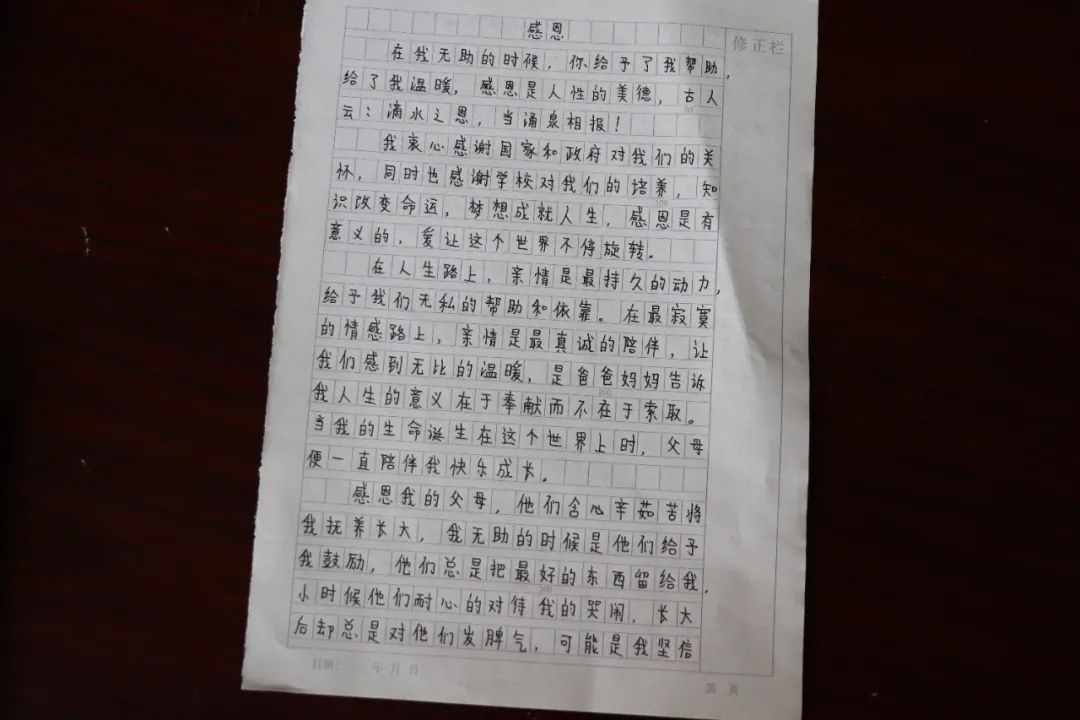 感恩
修正栏
在我无助的时候，你给予了我帮助，
给了我温暖，感恩是人性的美德，古人
云：滴水之恩，当涌泉相报！
我衷心感谢国家和政府对我们的关
怀，同时也感谢学校对我们的培养，知
100
识改变命运，梦想成就人生，感恩是有
意义的，爱让这个世界不停旋转。
在人生路上，亲情是最持久的动力，
给予我们无私的帮助和依靠。在最寂寞
的情感路上，亲情是最真诚的陪伴，让
我们感到无比的温暖，是爸爸妈妈告诉
200
我人生的意义在于奉献而不在于索取。
当我的生命诞生在这个世界上时，父母
便一直陪伴我快乐成长。
感恩我的父母，他们含心辛茹苦将
我抚养长大，我无助的时候是他们给予
我鼓励，他们总是把最好的东西留给我，
300
小时候他们耐心的对待我的哭闹，长大
后却总是对他们发脾气，可能是我坚信
日期： 年 月 日
第 页